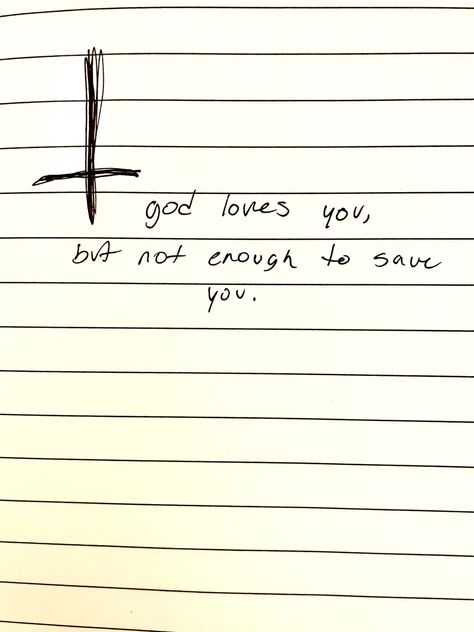 god loves you,
but not enough to save
you.